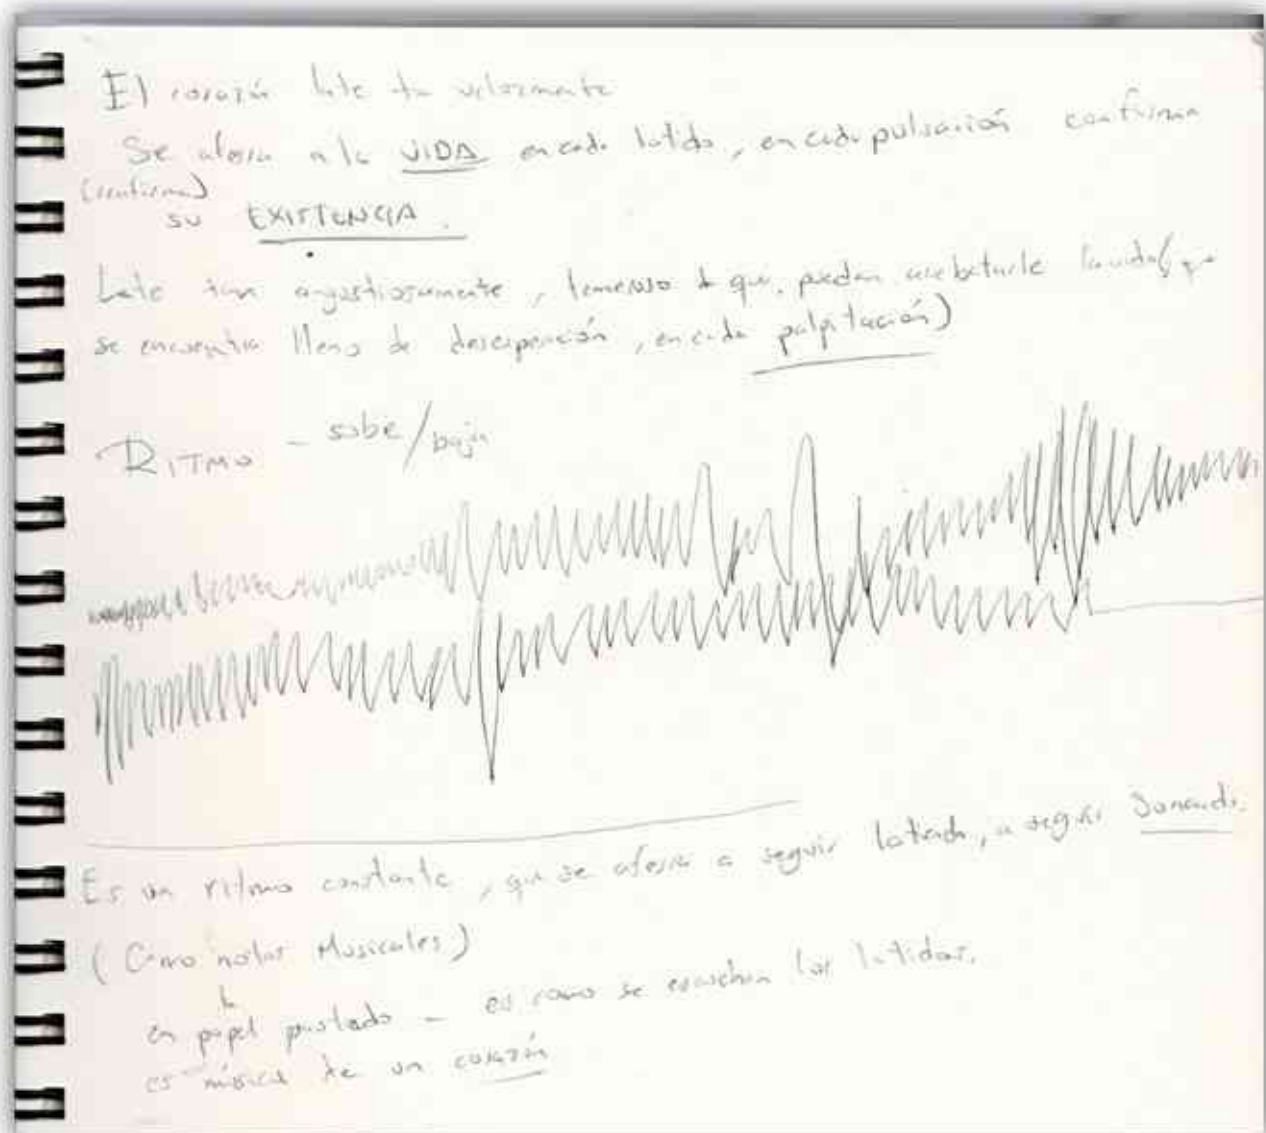 El corazón late tan velozmente
Se aferra a la VIDA en cada latido, en cada pulsación confirma
(confirma)
su EXISTENCIA.
Late tan angustiosamente, temeroso de que puedan arrebatarle la vida (que
se encuentra lleno de desesperación, en cada palpitación)
RITMO - sube/baja
Es un ritmo constante, que se aferra a seguir latiendo, a seguir sonando.
(Como notas Musicales)
en papel pautado - es como se escuchan los latidos.
es música de un corazón